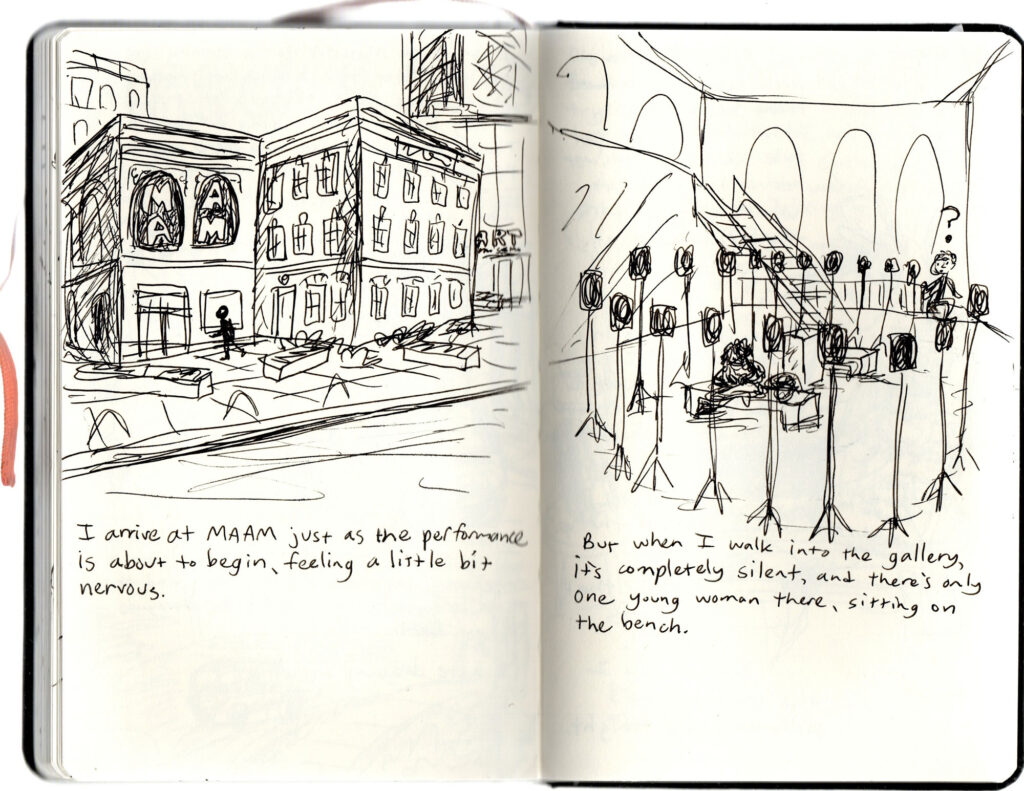 MA
AM
ART
I arrive at MAAM just as the performance
is about to begin, feeling a little bit
nervous.
?
But when I walk into the gallery,
it's completely silent, and there's only
one young woman there, sitting on
the bench.